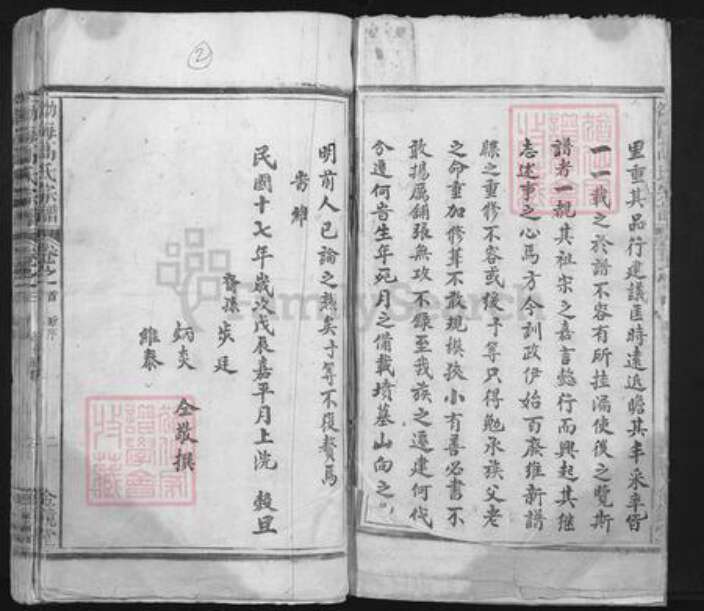 里重其品行建議匡時遠近瞻其丰采率皆
一一載之於譜不容有所掛漏使後之覽斯
譜者一覩其祖宗之嘉言懿行而興起其繼
志述事之心焉方今訓政伊始百廢維新譜
牒之重修不容或緩予等只得勉承族父老
之命重加修葺不敢規模狹小有善必書不
敢揚厲鋪張無攷不錄至我族之遷建何代
分邊何昔生年死月之備載墳墓山向之
明前人已論之熟矣予等不復贅焉
民國十七年歲次戊辰嘉平月上浣 穀旦
裔孫
炎廷
炳炎 仝敬撰
維泰
渤海高氏宗譜
FamilySearch
2